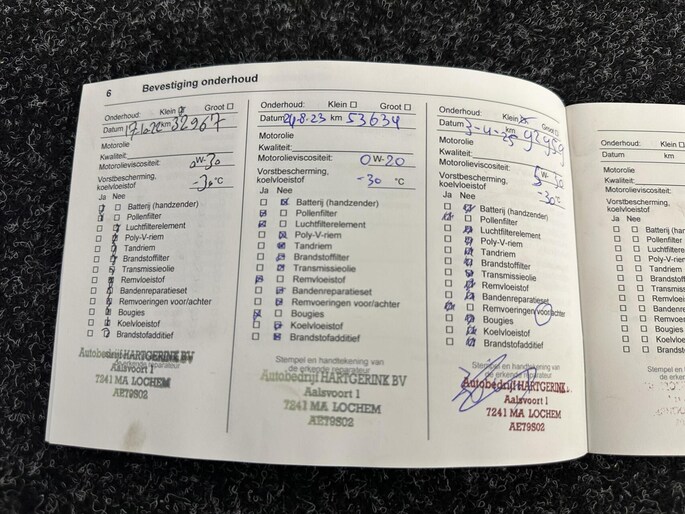 6 Bevestiging onderhoud
Onderhoud: Klein Groot
Datum km 32967
Motorolie
Kwaliteit:
Motorolieviscositeit: 0W-30
Vorstbescherming,
koelvloeistof -30 °C
Ja Nee
Batterij (handzender)
Pollenfilter
Luchtfilterelement
Poly-V-riem
Tandriem
Brandstoffilter
Transmissieolie
Remvloeistof
Bandenreparatieset
Remvoeringen voor/achter
Bougies
Koelvloeistof
Brandstofadditief
Autobedrijf HARTGERINK BV
Aalsvoort 1
7241 MA LOCHEM
AE79S02
Onderhoud: Klein Groot
Datum 24-8-23 km 53634
Motorolie
Kwaliteit:
Motorolieviscositeit: 0W-20
Vorstbescherming,
koelvloeistof -30 °C
Ja Nee
Batterij (handzender)
Pollenfilter
Luchtfilterelement
Poly-V-riem
Tandriem
Brandstoffilter
Transmissieolie
Remvloeistof
Bandenreparatieset
Remvoeringen voor/achter
Bougies
Koelvloeistof
Brandstofadditief
Stempel en handtekening van
de erkende reparateur
Autobedrijf HARTGERINK BV
Aalsvoort 1
7241 MA LOCHEM
AE79S02
Onderhoud: Klein Groot
Datum 3-4-25 km 92959
Motorolie
Kwaliteit:
Motorolieviscositeit: W-30
Vorstbescherming,
koelvloeistof -30°C
Ja Nee
Batterij (handzender)
Pollenfilter
Luchtfilterelement
Poly-V-riem
Tandriem
Brandstoffilter
Transmissieolie
Remvloeistof
Bandenreparatieset
Remvoeringen voor/achter
Bougies
Koelvloeistof
Brandstofadditief
Stempel en handtekening van
de erkende reparateur
Autobedrijf HARTGERINK
Aalsvoort 1
7241 MA LOCHEM
AE79S02
Onderhoud: Klein
Datum km
Motorolie
Kwaliteit:
Motorolieviscositeit:
Vorstbescherming,
koelvloeistof
Ja Nee
Batterij (handz
Pollenfilter
Luchtfiltereleme
Poly-V-riem
Tandriem
Brandstoffilter
Transmissieolie
Remvloeistof
Bandenrepara
Remvoeringen
Bougies
Koelvloeistof
Brandstofaddi
Stempel en h
de erken